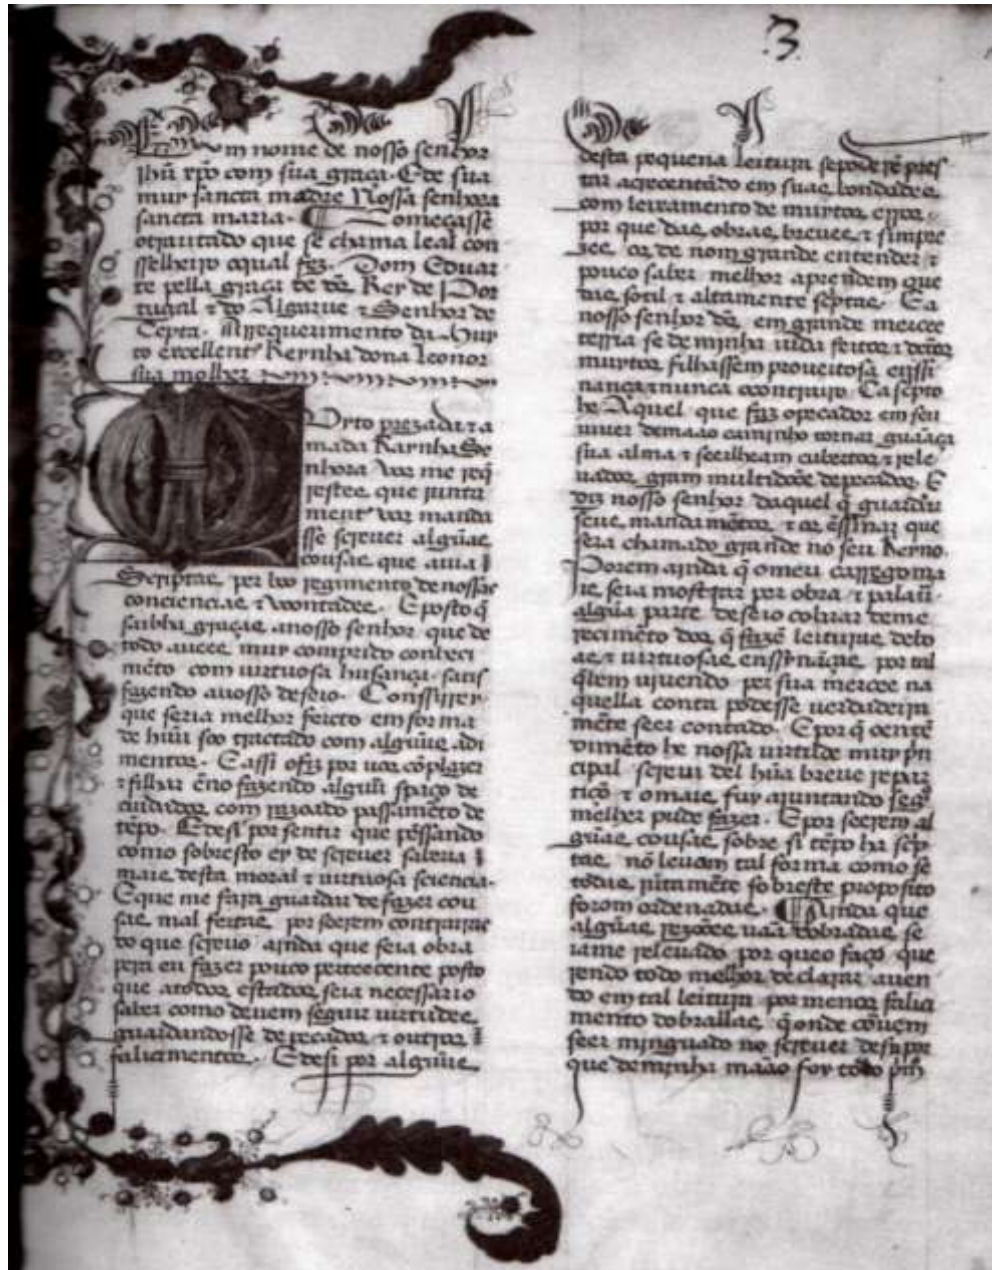 3
Em nome de nosso senhor
Jhũ xpõ com sua graça. E de sua
muy sancta madre Nossa senhora
sancta maria. Començasse
otrautado que se chama leal con
sselheyro oqual fez. Dom Eduar
te pella graça de dš Rey de Por
tugal & do Algarue & Senhor de
Cepta. A requerimento da muy
to excellente Reynha dona leonor
sua molher
Muyto prezada & a
mada Raynha Se
nhora Vos me req̃
restes que junta
mente vos manda
sse screuer algũas
cousas que auia
Scriptas per boo regimento de nossas
conciencias & voontades. E posto q̃
saibha graças anosso senhor que de
todo auees muy comprido conheci
mẽto com uirtuosa husança. satis
fazendo auosso deseio. Conssiirey
que seria melhor feicto em forma
de hũu soo tractado com algũus adi
mentos. E assi ofiz por uos cõplazer
& filhar ẽno fazendo algũu spaço de
cuidados com razoado passamẽto de
tẽpo. E desi por sentir que pẽssando
como sobresto ey de screuer saberia
mais desta moral & uirtuosa sciencia.
E que me fara guardar de fazer cou
sas mal feitas por seerem contrairas
do que screuo ainda que seia obra
pera eu fazer pouco perteecente posto
que atodos estados seia necessario
saber como deuem seguir uirtudes
guardandosse de pecados & outros
falicimentos. E desi por algũus
desta pequena leitura se pode rẽ pres
tar acrecentãdo em suas bondades
com leixamento de muytos erros
por que das obras breues & simpre
zes os de nom grande entender &
pouco saber melhor aprendem que
das sotil & altamente scptas. E a
nosso senhor dš em grande mercee
terria se de minha uida feitos & dctõs
muytos filhassem proueitosa enssi
nança & nunca o contrairo. Ca scpto
he Aquel que faz opecador em seu
uiuer demaao caminho tornar guaãça
sua alma & seeilheam cubertos & rele
uados gram multidõoe de pecados. E
diz nosso senhor daquel q̃ guardar
seus mandamẽtos & os ẽssinar que
sera chamado grande no seu Reyno.
Porem ainda q̃ omeu carrego ma
is seia mostrar por obra & palaũ
algũa parte deseio cobrar do me
recimẽto dos q̃ fazẽ leituras dele
as & uirtuosas enssynãças por tal
q̃ em uiuendo per sua mercee na
quella conta podesse uerdadeira
mẽte seer contado. E por q̃ oentẽ
dimẽto he nossa uirtude muy prin
cipal screui del hũa breue repar
tiçõ & omais fuy ajuntando segũ
melhor pude fazer. E por seerem al
gũas cousas sobre si tẽpo ha scp
tas nõ leuom tal forma como se
todas juntamẽte sobreste proposito
forom ordenadas. Ainda que
algũas rezões uãa dobradas se
iame releuado por queo faço que
rendo todo melhor declarar auen
do em tal leitura por menos falic
mento dobrallas q̃ onde cõuem
seer minguado no screuer desi por
que deminha maão foy todo prim̃